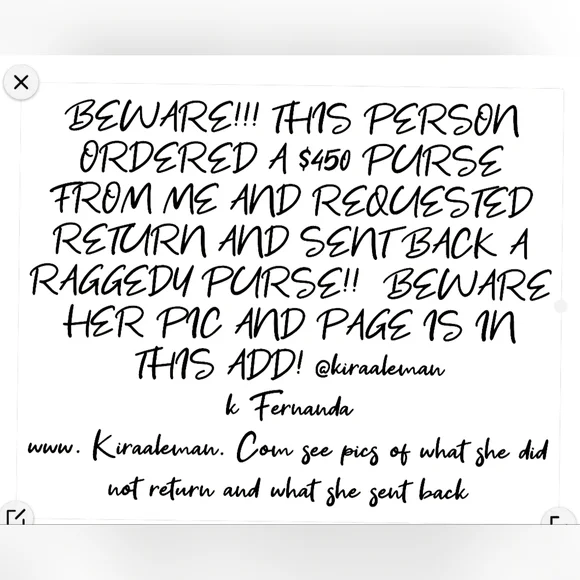 BEWARE!!! THIS PERSON
ORDERED A $450 PURSE
FROM ME AND REQUESTED
RETURN AND SENT BACK A
RAGGEDY PURSE!! BEWARE
HER PIC AND PAGE IS IN
THIS ADD! @kiraaleman
k Fernanda
www. Kiraaleman. Com see pics of what she did
not return and what she sent back